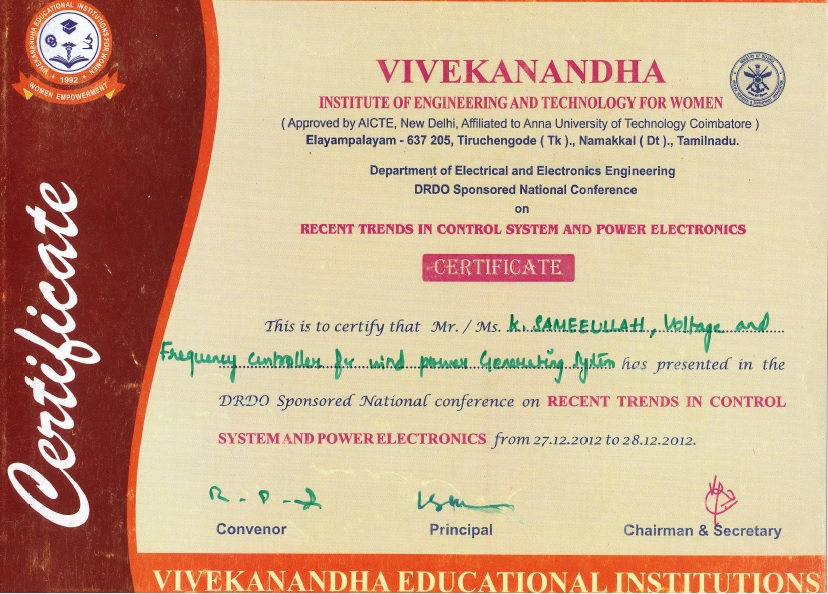 VIVEKANANDHA EDUCATIONAL INSTITUTIONS FOR WOMEN
1992
WOMEN EMPOWERMENT
Certificate
VIVEKANANDHA
INSTITUTE OF ENGINEERING AND TECHNOLOGY FOR WOMEN
( Approved by AICTE, New Delhi, Affiliated to Anna University of Technology Coimbatore )
Elayampalayam - 637 205, Tiruchengode ( Tk )., Namakkal ( Dt )., Tamilnadu.
Department of Electrical and Electronics Engineering
DRDO Sponsored National Conference
on
RECENT TRENDS IN CONTROL SYSTEM AND POWER ELECTRONICS
CERTIFICATE
This is to certify that Mr. / Ms. K. SAMEEULLAH, Voltage and
Frequency controller for wind power Generating System has presented in the
DRDO Sponsored National conference on RECENT TRENDS IN CONTROL
SYSTEM AND POWER ELECTRONICS from 27.12.2012 to 28.12.2012.
Convenor Principal Chairman & Secretary
VIVEKANANDHA EDUCATIONAL INSTITUTIONS